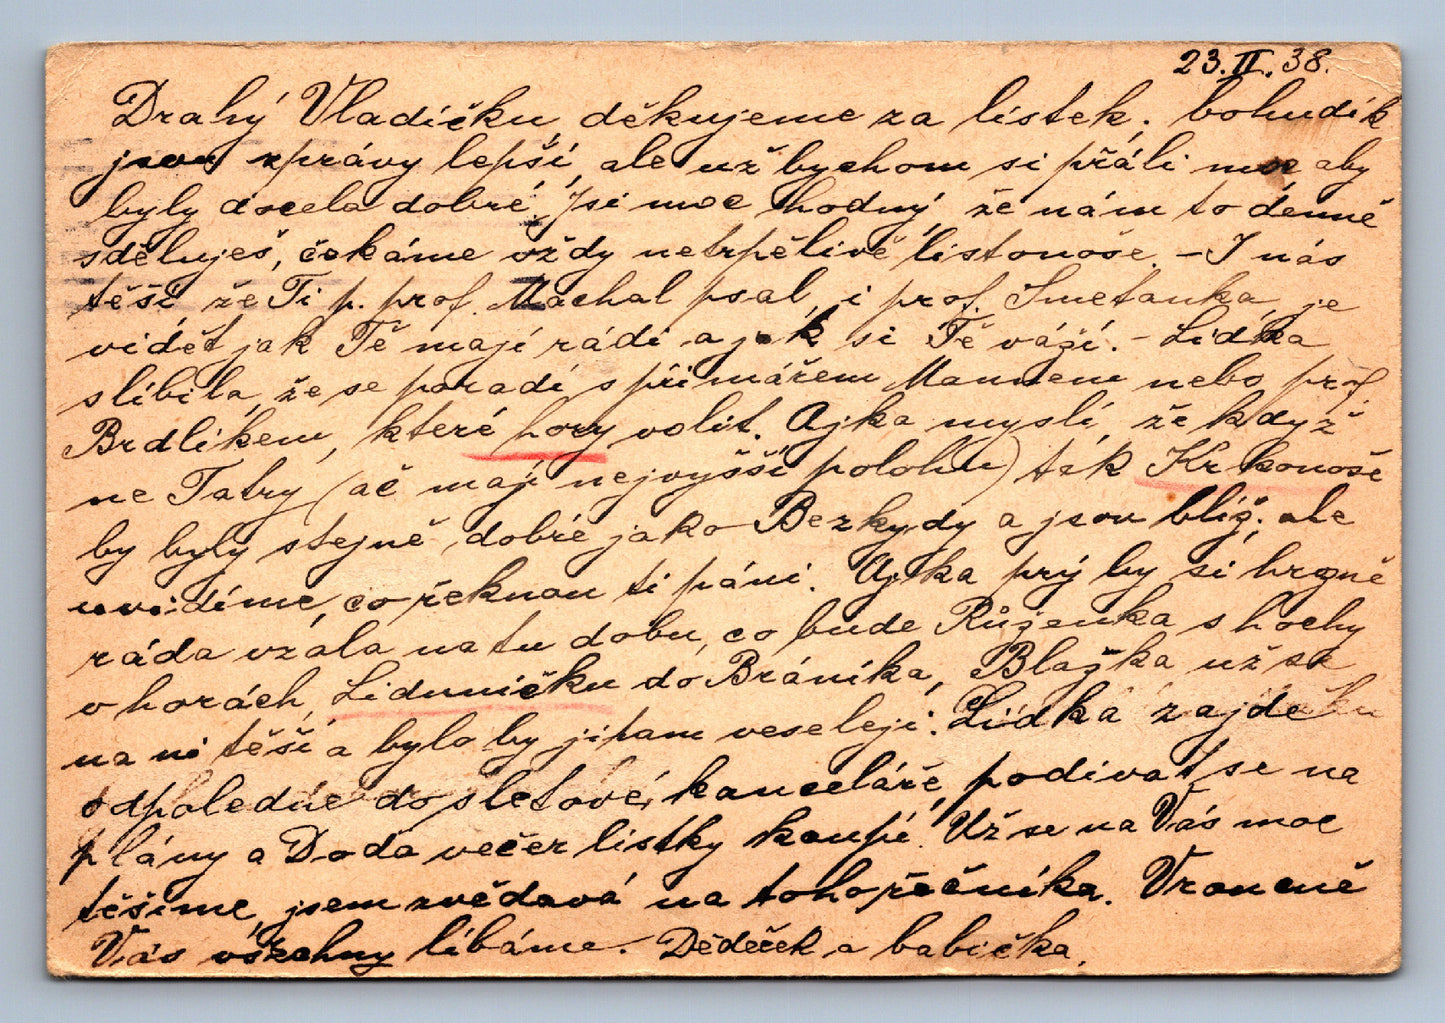 23.II.38.
Drahý Vladíčku, děkujeme za lístek. bohudík
jsou zprávy lepší, ale už bychom si přáli moc aby
byly docela dobré. Jsi moc hodný, že nám to denně
sděluješ, čekáme vždy netrpělivě listonoše. – I nás
těší, že Ti p. prof. Máchal psal, i prof. Smetanka, je
vidět jak Tě mají rádi a jak si Tě váží. – Lidka
slíbila, že se poradí s primářem Mannem nebo prof.
Brdlíkem, které hory volit. Ajka myslí, že když
ne Tatry (ač mají nejvyšší polohu) tak Krkonoše
by byly stejně dobré jako Bezkydy a jsou blíž. ale
uvidíme, co řeknou ti páni. Ajka prý by si hrozně
ráda vzala na tu dobu, co bude Růženka s hochy
v horách, Lidunničku do Bráníka, Blažka už se
na ni těší a bylo by jí tam veseleji. Lidka zajde
odpoledne do sletové kanceláře, podívat se na
plány a Doda večer lístky koupí. Už se na Vás moc
těšíme, jsem zvědavá na toho řečníka. Vroucně
Vás všechny líbáme. Dědeček a babička.